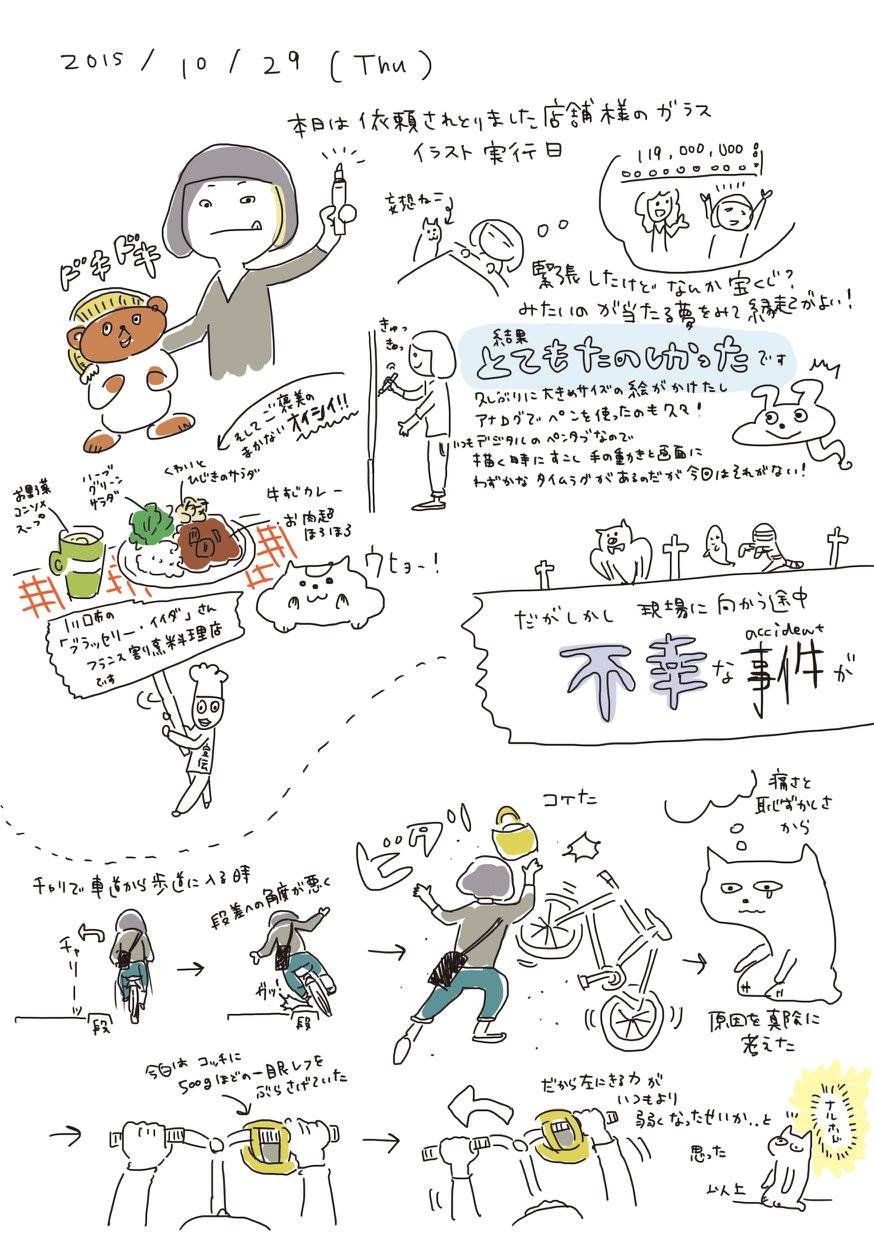 2015 / 10 / 29 (Thu)
本日は依頼されとりました店舗様のガラス
イラスト実行日
ドキドキ
妄想ねこ
119,000,000
緊張したけどなんか宝くじ?
みたいのが当たる夢をみて縁起がよい!
きゅっ
きゅっ
結果
とてもたのしかったです
久しぶりに大きめサイズの絵がかけたし
アナログでペンを使ったのも久々!
いつもデジタルのペンタブなので
描く時にすこし手の動きと画面に
わずかなタイムラグがあるのだが今回はそれがない!
そしてご褒美の
まかない オイシイ!!
お野菜
コンソメ
スープ
ハーブ
グリーン
サラダ
くわいと
ひじきのサラダ
牛すじカレー
お肉超
ほろほろ
ウヒョー!
川口市の
「ブラッセリー・イイダ」さん
フランス割烹料理店
です
宣伝
だがしかし 現場に向かう途中
accident
不幸な事件が
チャリで車道から歩道に入る時
チャリーッ
段
段差への角度が悪く
ガッ!
段
ビターン
コケた
痛さと
恥ずかしさ
から
原因を真険に
考えた
今日はコッチに
500gほどの一眼レフを
ぶらさげていた
だから左にきる力が
いつもより
弱くなったせいか..と
思った
ナルホド
以上